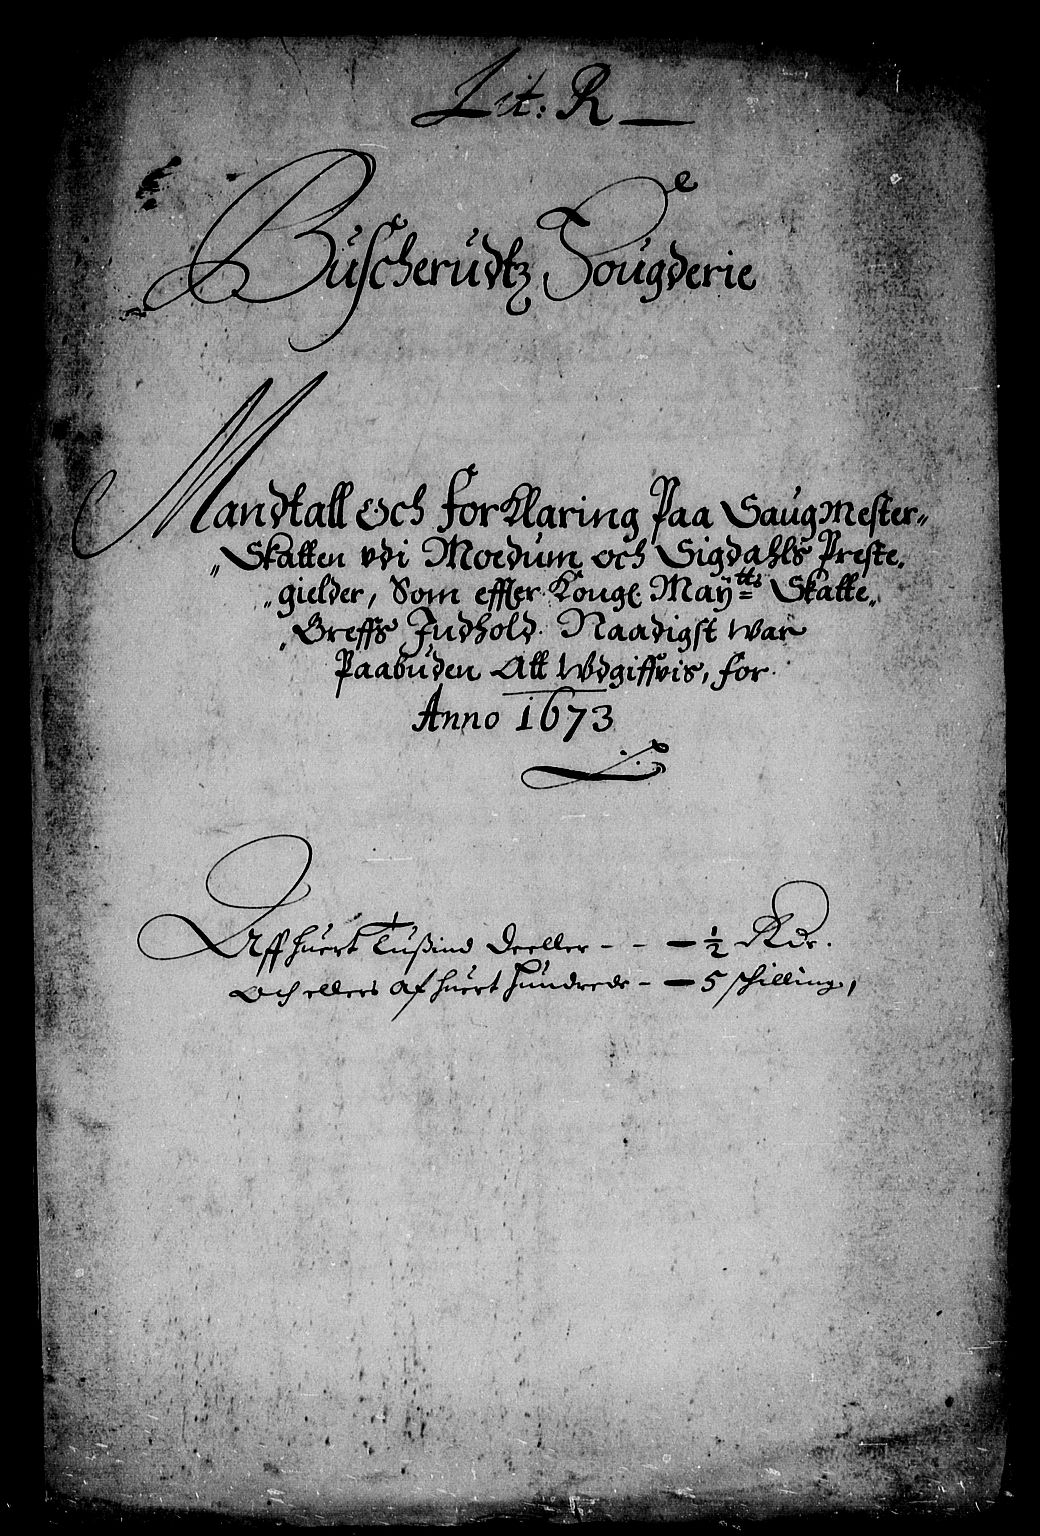 Lit: R
Buscherudtz Fougderie
Mandtall Och forKlaring Paa SaugMester-
Skatten vdi Moedum och Sigdahls Preste-
gielder, Som effter Kongl: Maÿ:tts Skatte
Breffs Indhold Naadigst War
Paabuden Att Wdgiffvis, for
Anno 1673
Aff huert Tußind Deeller - - - ½ Rdr.
Och ellers af huert hundrede - - 5 schilling,